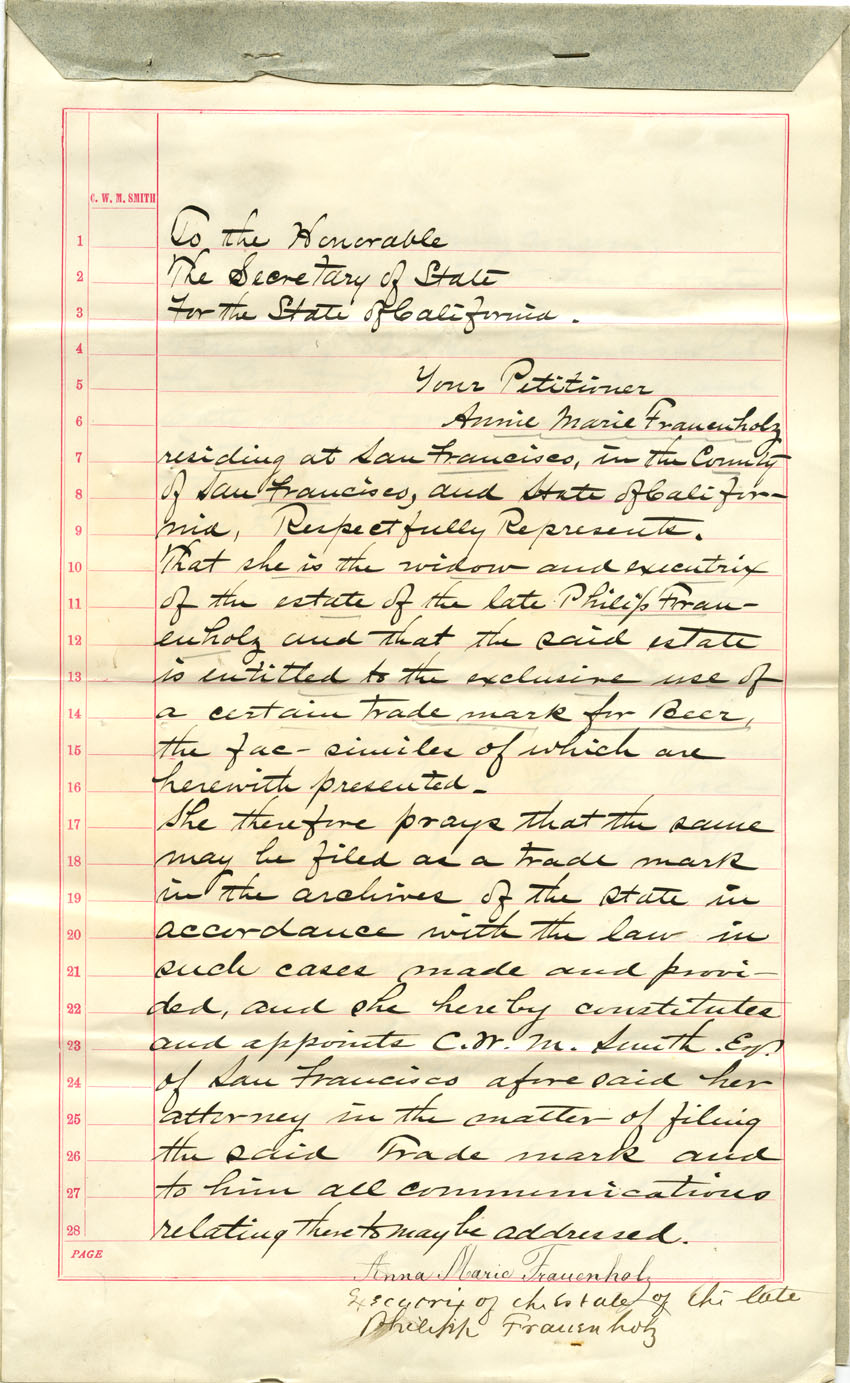 C. W. M. SMITH
1 To the Honorable
2 The Secretary of State
3 For the State of California.
4
5 Your Petitioner
6 Annie Marie Frauenholz
7 residing at San Francisco, in the County
8 of San Francisco, and State of Califor-
9 nia, Respectfully Represents.
10 That she is the widow and executrix
11 of the estate of the late Philip Frau-
12 enholz and that the said estate
13 is entitled to the exclusive use of
14 a certain trade mark for Beer,
15 the fac-similes of which are
16 herewith presented.
17 She therefore prays that the same
18 may be filed as a trade mark
19 in the archives of the state in
20 accordance with the law in
21 such cases made and provi-
22 ded, and she hereby constitutes
23 and appoints C. W. M. Smith Esq.
24 of San Francisco aforesaid her
25 attorney in the matter of filing
26 the said Trade mark and
27 to him all communications
28 relating thereto may be addressed.
PAGE
Anna Marie Frauenholz
Executrix of the Estate of the late
Philipp Frauenholz